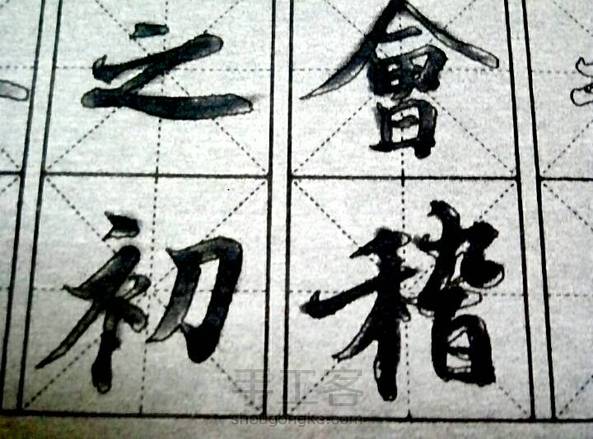 會稽
之初
手工客
shougongke.com